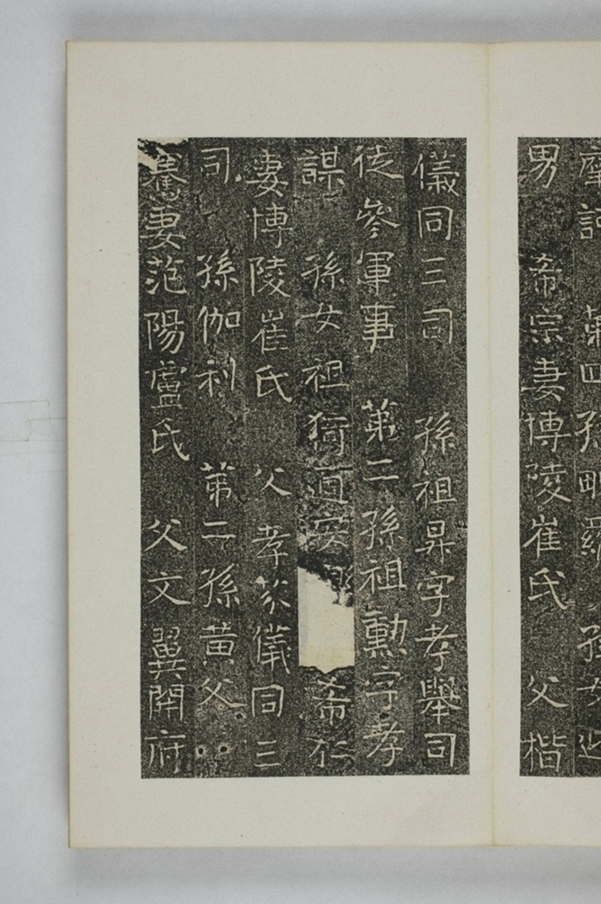 摩訶 第四孫毗羅 孫女迎
男 希宗妻博陵崔氏 父楷
儀同三司 孫祖昇字孝舉司
徒參軍事 第二孫祖勳字孝
謀 孫女祖猗適 希仁
妻博陵崔氏 父孝芬儀同三
司 孫伽利 第二孫黃父
騫妻范陽盧氏 父文翼開府